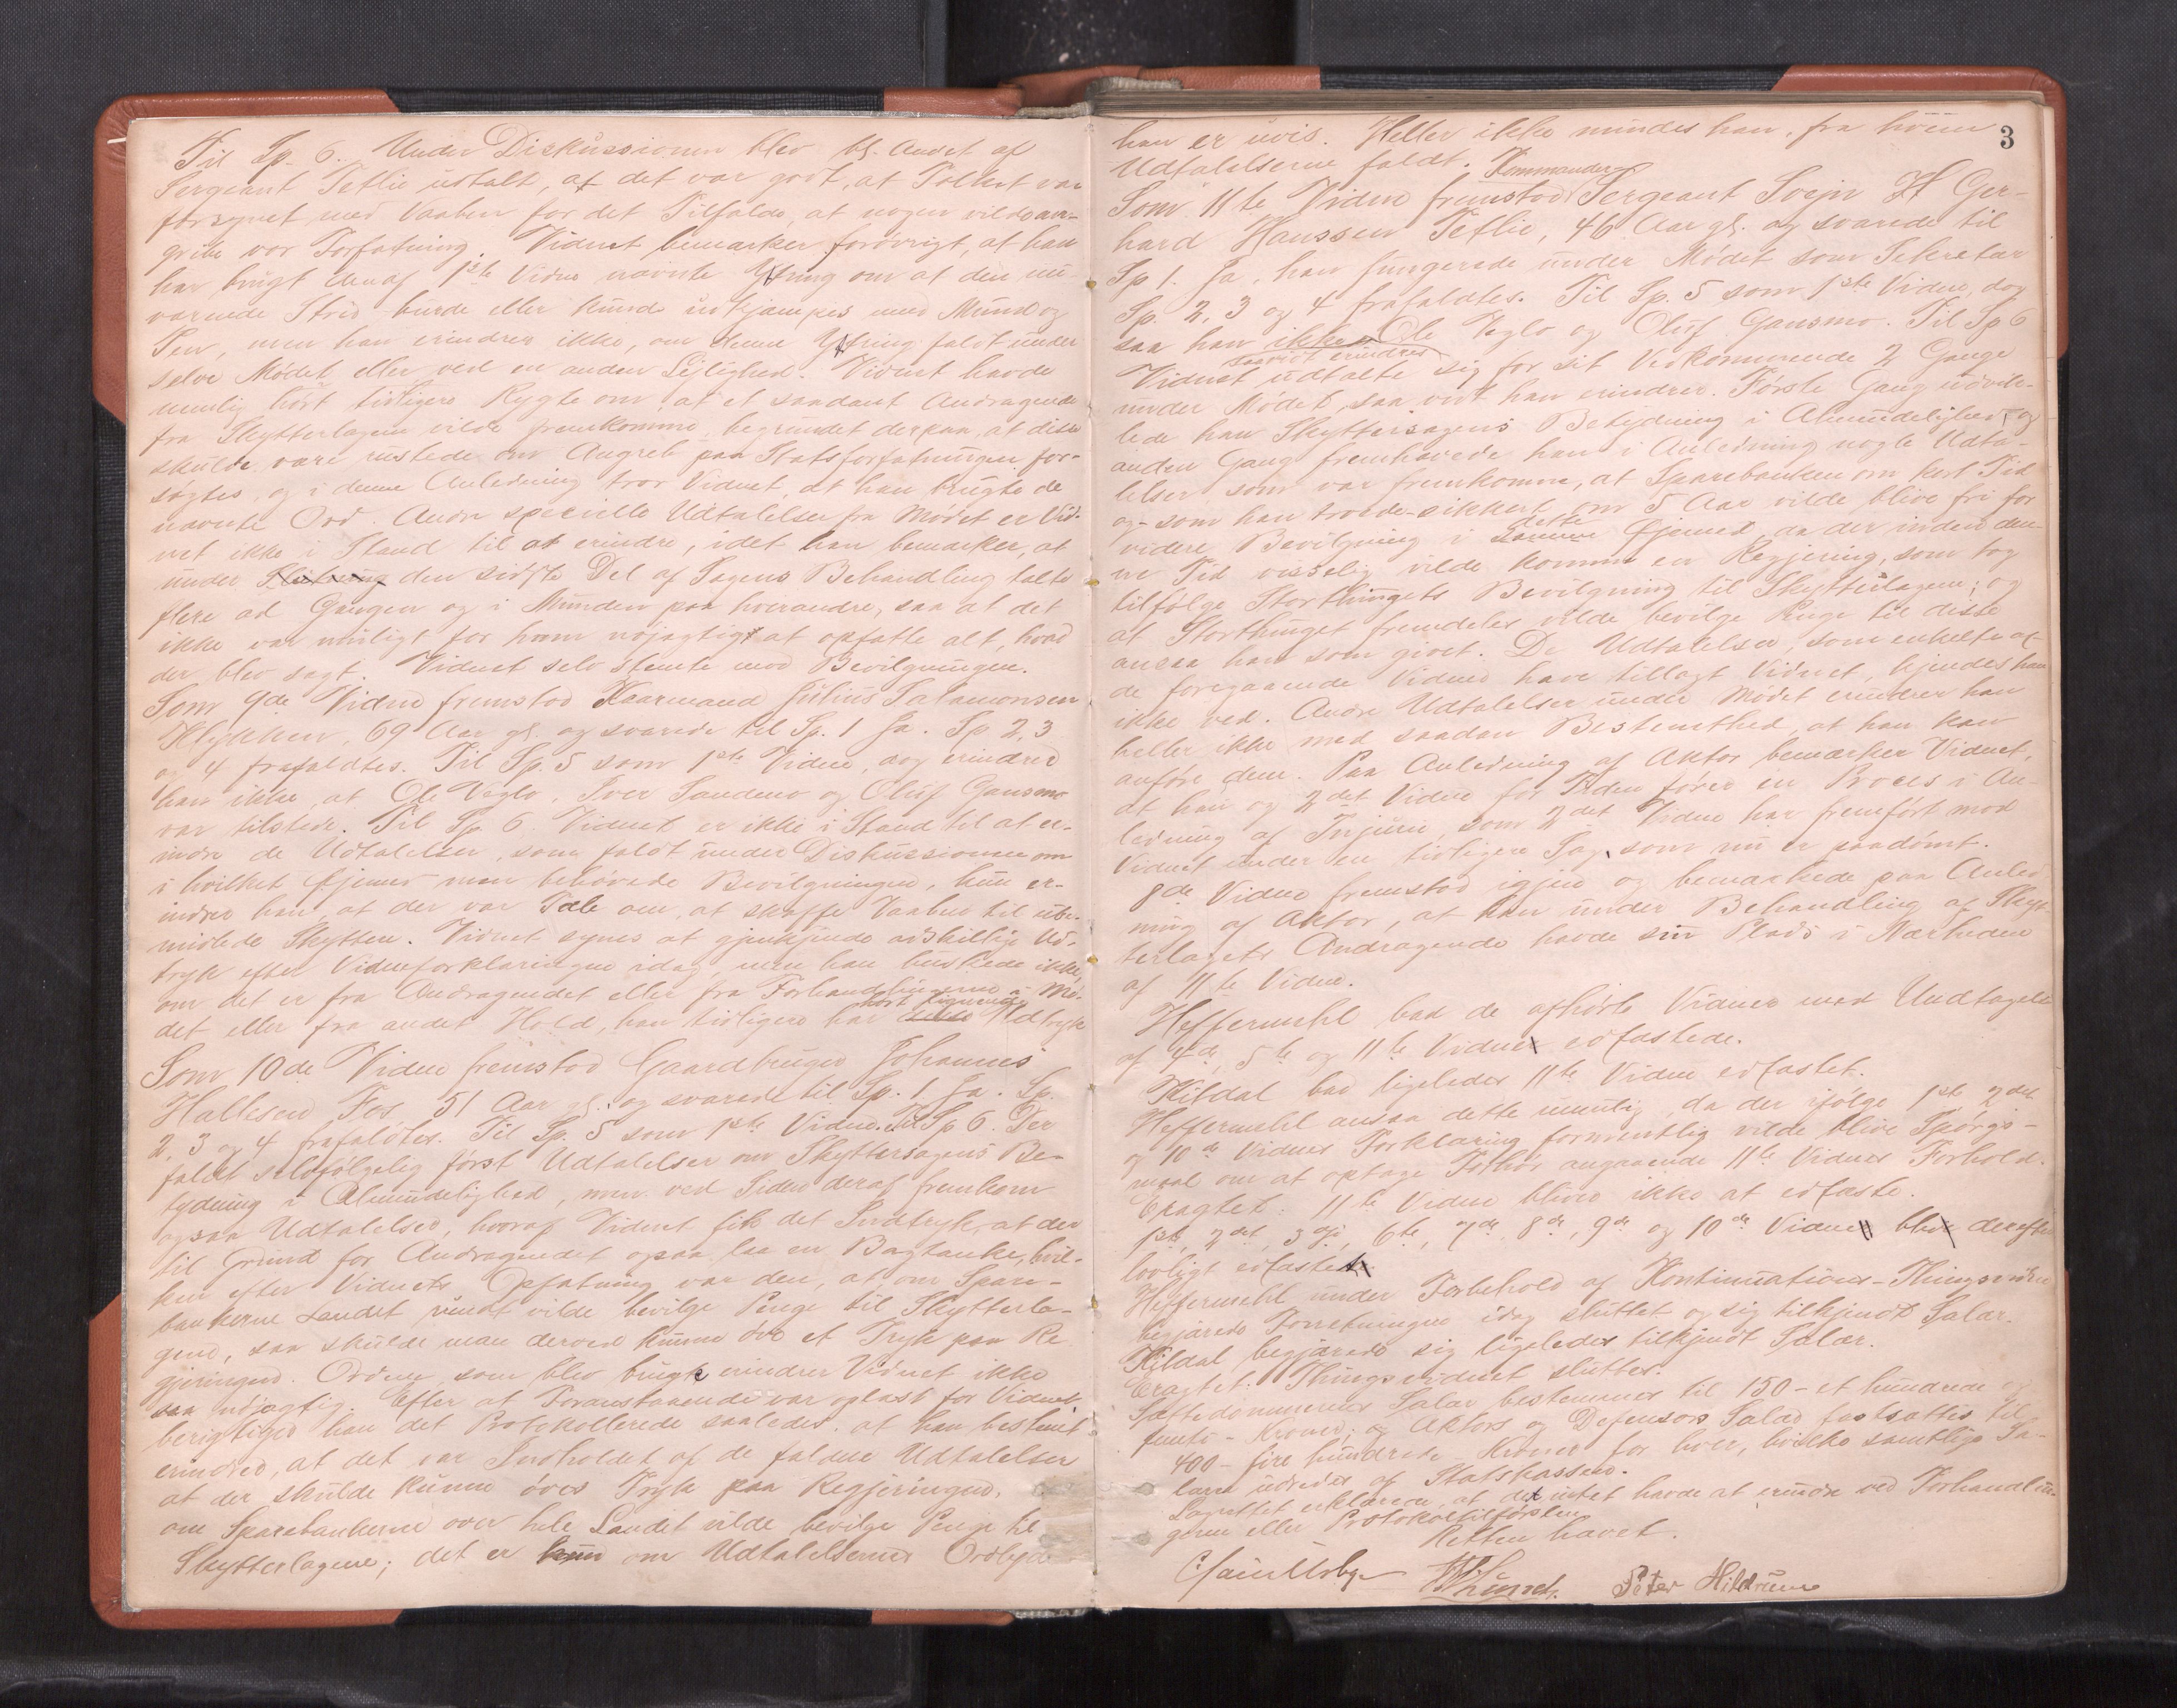 Til Sp. 6. Under Diskussionen blev bl. Andet af
Sergeant Teflie udtalt, at det var godt, at Folket var
forsynet med Vaaben for det Tilfælde, at nogen vilde an-
gribe vor Forfatning. Vidnet bemærker forøvrigt, at han
har brugt den af 1ste Vidne nævnte Ytring om at den nu-
værende Strid burde eller kunde udkjæmpes med Mund og
Pen, men han erindrer ikke, om denne Ytring faldt under
selve Mødet eller ved en anden Leilighed. Vidnet havde
nemlig hørt tidligere Rygte om, at et saadant Andragende
fra Skytterlagene vilde fremkomme, begrundet derpaa, at disse
skulde være rustede om Angreb paa Statsforfatningen for-
søgtes, og i denne Anledning tror Vidnet, at han brugte de
nævnte Ord. Andre specielle Udtalelser fra Mødet er Vid-
net ikke i Stand til at erindre, idet han bemærker, at
under den sidste Del af Sagens Behandling talte
flere ad Gangen og i Munden paa hverandre, saa at det
ikke var muligt for ham nøjagtigt at opfatte alt, hvad
der blev sagt. Vidnet selv stemte mod Bevilgningen.
Som 9de Vidne fremstod Kaarmand Julius Salamonsen
Klykken, 69 Aar gl. og svarede til Sp. 1 Ja. Sp 2, 3
og 4 frafaldtes. Til Sp. 5 som 1ste Vidne, dog erindrer
han ikke, at Ole Veglo, Iver Sandenv og Oluf Gansmo
var tilstede. Til Sp 6. Vidnet er ikke i Stand til at er-
indre de Udtalelser, som faldt under Diskussionen om
i hvilket Øjemed man behøvede Bevilgningen, kun er-
indrer han, at der var Tale om, at skaffe Vaaben til ube-
midlede Skyttere. Vidnet synes at gjenkjende adskillige Ud-
tryk efter Vidneforklaringen idag, men han huskede ikke,
om det er fra Andragendet eller fra Forhandlingerne i Mø-
det eller fra andet Hold, han tidligere har hørt lignende Udtryk
Som 10de Vidne fremstod Gaardbruger Johannes
Hallesen Fos, 51 Aar gl. og svarede til Sp. 1 Ja. Sp.
2, 3 og 4 frafaldtes. Til Sp. 5 som 1ste Vidne. Til Sp 6. Der
faldt selvfølgelig først Udtalelser om Skyttersagens Be-
tydning i Almindelighed, men ved Siden deraf fremkom
ogsaa Udtalelser, hvoraf Vidnet fik det Indtryk, at der
til Grund for Andragendet ogsaa laa en Bagtanke, hvil-
ken efter Vidnets Opfatning var den, at om Spare-
bankerne Landet rundt vilde bevilge Penge til Skytterla-
gene, saa skulde man derved kunne øve et Tryk paa Re-
gjeringen. Ordene, som blev brugt erindrer Vidnet ikke
saa nøjagtig. Efter at Foranstaaende var oplæst for Vidnet,
berigtiger han det Protokollerede saaledes, at han bestemt
erindrer, at det var Indholdet af de faldne Udtalelser
at der skulde kunne øves Tryk paa Regjeringen,
om Sparebankerne over hele Landet vilde bevilge Penge til
Skytterlagene; det er kun om Udtalelsernes Ordlyd
3
han er uvis. Heller ikke mindes han, fra hvem
Udtalelserne faldt.
Som 11te Vidne fremstod Kommander Sergeant Svejn H Ger-
hard Hanssen Teflie, 46 Aar gl. og svarede til
Sp 1. Ja, han fungerede under Mødet som Sekretær
Sp. 2, 3 og 4 frafaldtes. Til Sp. 5 som 1ste Vidne, dog
saa han ikke Ole Veglo og Oluf Gansmo. Til Sp 6
saavidt erindres
Vidnet udtalte sig for sit Vedkommende 2 Gange
under Mødet, saa vidt han erindrer. Første Gang udvik-
lede han Skyttersagens Betydning i Almindelighed, og
anden Gang fremhævede han i Anledning nogle Udta-
lelser som var fremkomne, at Sparebanken om kort Tid
og - som han troede - sikkert om 5 Aar vilde blive fri for
videre Bevilgning i dette Øjemed, da der inden den-
ne Tid visselig vilde komme en Regjering, som tog
tilfølge Storthingets Bevilgning til Skytterlagene; og
at Storthinget fremdeles vilde bevilge Penge til disse
ansaa han som givet. De Udtalelser, som enkelte af
de foregaaende Vidner have tillagt Vidnet, kjendes han
ikke ved. Andre Udtalelser under Mødet erindrer han
heller ikke med saadan Bestemthed, at han kan
anføre dem. Paa Anledning af Aktor bemærker Vidnet,
at han og 2det Vidne for Tiden fører en Proces i An-
ledning af Injurie, som 2det Vidne har fremført mod
Vidnet under en tidligere Sag, som nu er paadømt.
8de Vidne fremstod igjen og bemærkede paa Anled-
ning af Aktor, at han under Behandling af Skyt-
terlagets Andragende havde sin Plads i Nærheden
af 11te Vidne.
Heffermehl bad de afhørte Vidner med Undtagelse
af 4de, 5te og 11te Vidne edfæstede.
Kildal bad ligeledes 11te Vidne edfæstet.
Heffermehl ansaa dette umulig, da der ifølge 1ste 2det
og 10de Vidnes Forklaring formentlig vilde blive Spørgs-
maal om at optage Forhør angaaende 11te Vidnes Forhold.
Eragtet: 11te Vidne bliver ikke at edfæste.
1ste, 2det, 3die, 6te, 7de, 8de, 9de og 10de Vidne blev derefter
lovligt edfæstet
Heffermehl under Forbehold af Kontinuations-Thingsvidne
begjærede Forretningen idag sluttet og sig tilkjendt Salær.
Kildal begjærede sig ligeledes tilkjendt Salær.
Eragtet: Thingsvidnet sluttes.
Sættedommerens Salær bestemmes til 150 - et hundrede og
femti - Kroner, og Aktors og Defensors Salær fastsættes til
400 - fire hundrede Kroner for hver, hvilke samtlige Sa-
lærer udredes af Statskassen.
Lagrettet erklærede, at det intet havde at erindre ved Forhandlin-
gerne eller Protokoltilførslen.
Retten hævet.
Peter Hildrum